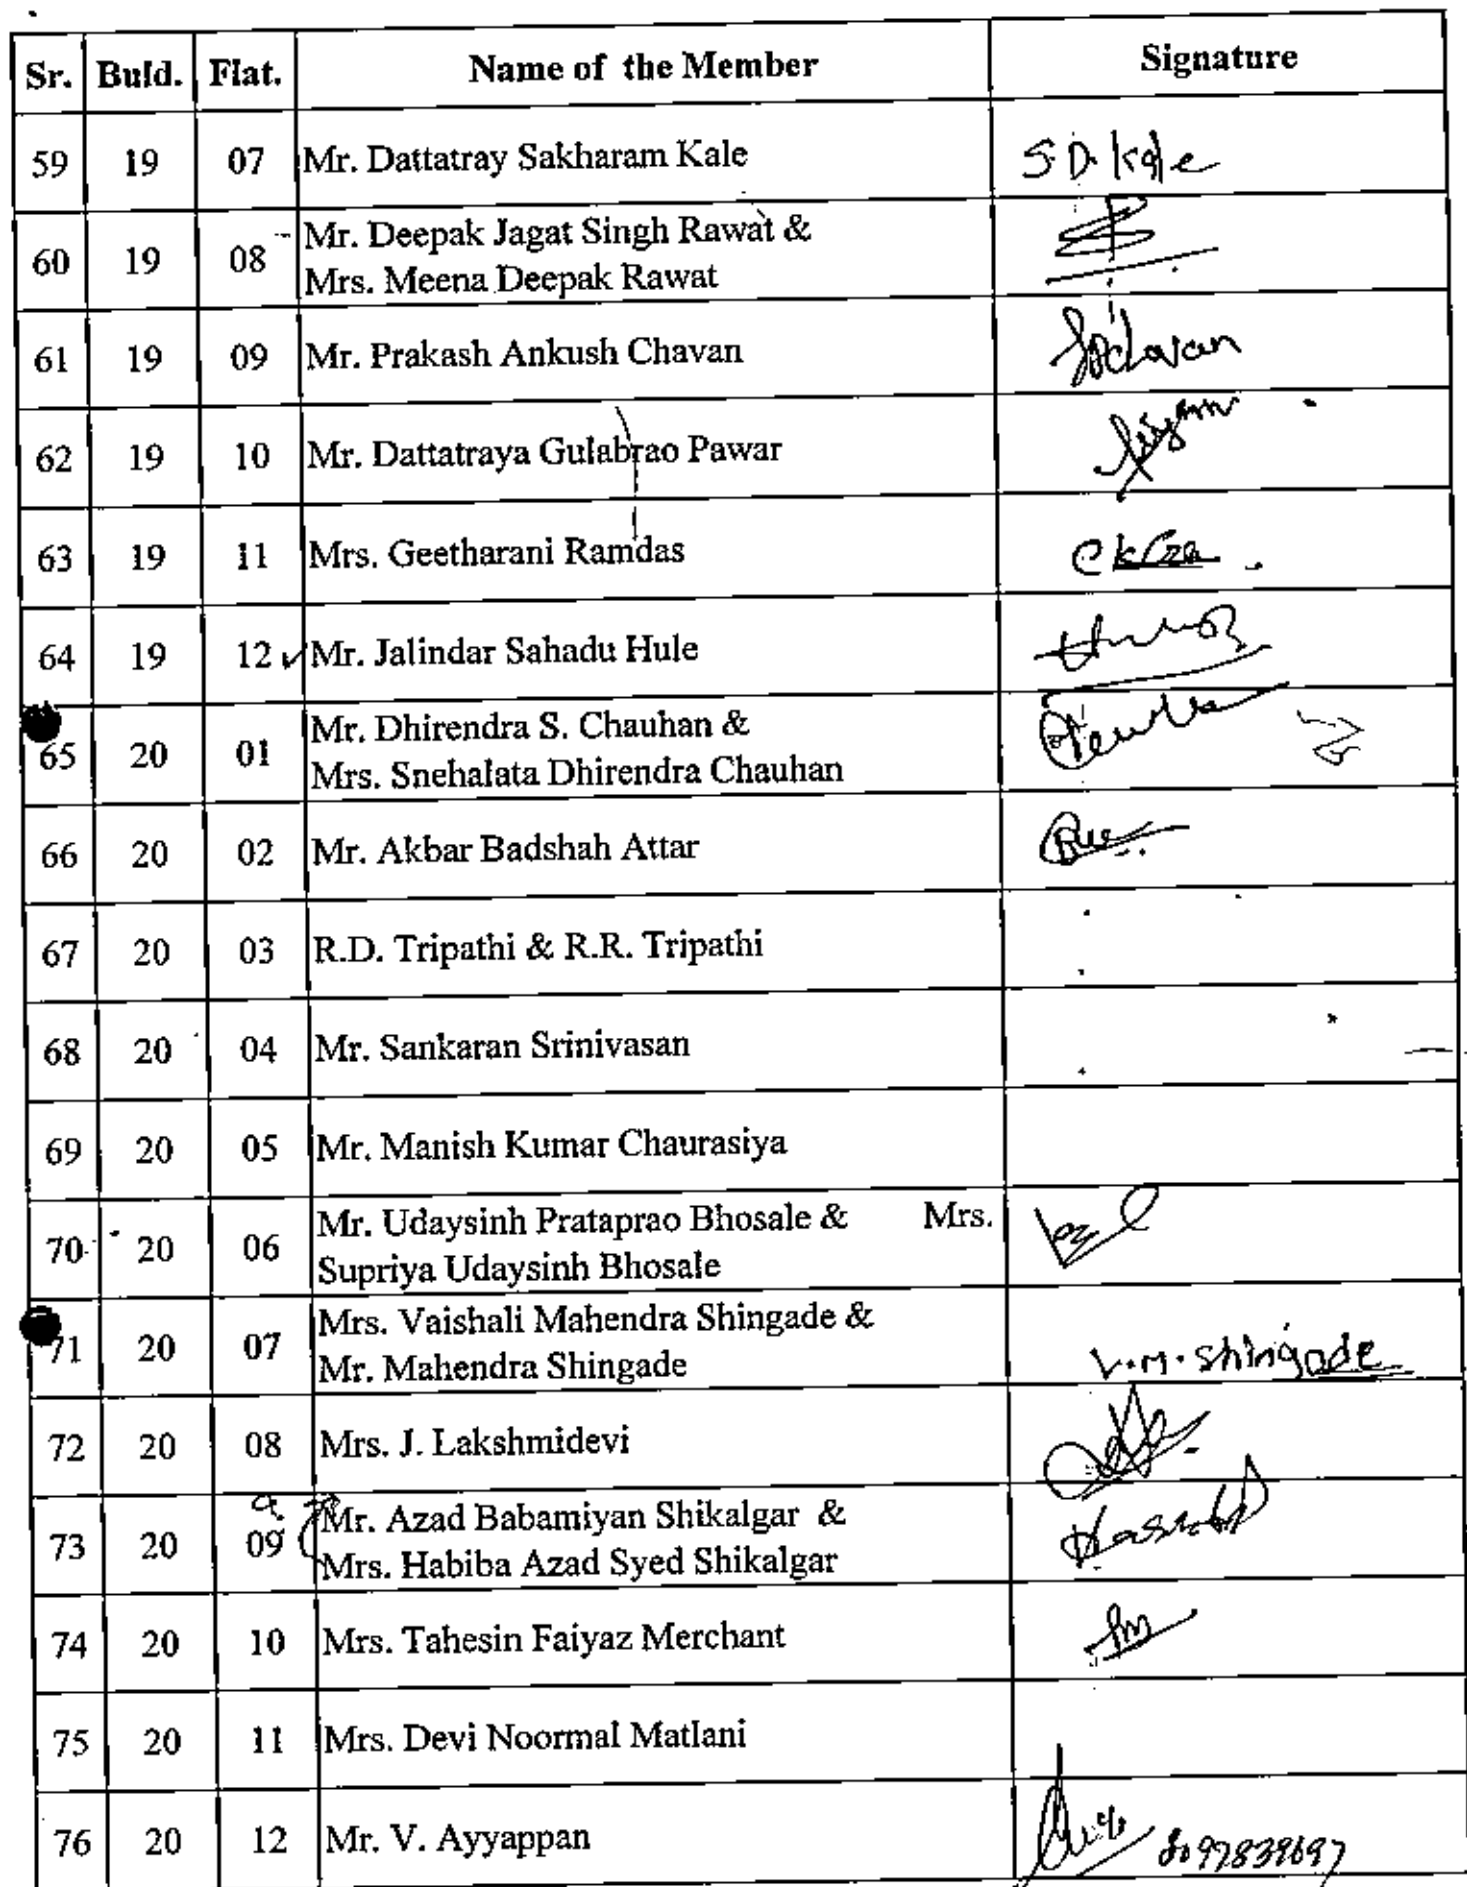 Sr. Buld. Flat. Name of the Member Signature
59 19 07 Mr. Dattatray Sakharam Kale S.D. Kale
60 19 08 Mr. Deepak Jagat Singh Rawat &
Mrs. Meena Deepak Rawat
61 19 09 Mr. Prakash Ankush Chavan
62 19 10 Mr. Dattatraya Gulabrao Pawar
63 19 11 Mrs. Geetharani Ramdas
64 19 12 Mr. Jalindar Sahadu Hule
65 20 01 Mr. Dhirendra S. Chauhan &
Mrs. Snehalata Dhirendra Chauhan
66 20 02 Mr. Akbar Badshah Attar
67 20 03 R.D. Tripathi & R.R. Tripathi
68 20 04 Mr. Sankaran Srinivasan
69 20 05 Mr. Manish Kumar Chaurasiya
70 20 06 Mr. Udaysinh Prataprao Bhosale & Mrs.
Supriya Udaysinh Bhosale
71 20 07 Mrs. Vaishali Mahendra Shingade &
Mr. Mahendra Shingade V.M. Shingade
72 20 08 Mrs. J. Lakshmidevi
73 20 09 Mr. Azad Babamiyan Shikalgar &
Mrs. Habiba Azad Syed Shikalgar
74 20 10 Mrs. Tahesin Faiyaz Merchant
75 20 11 Mrs. Devi Noormal Matlani
76 20 12 Mr. V. Ayyappan 8097839697